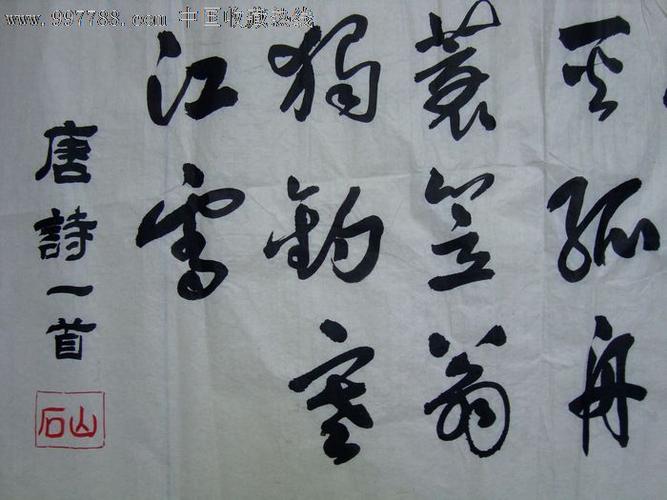 www.997788.com 中国收藏热线
灭孤舟
蓑笠翁
獨釣寒
江雪
唐詩一首
山石